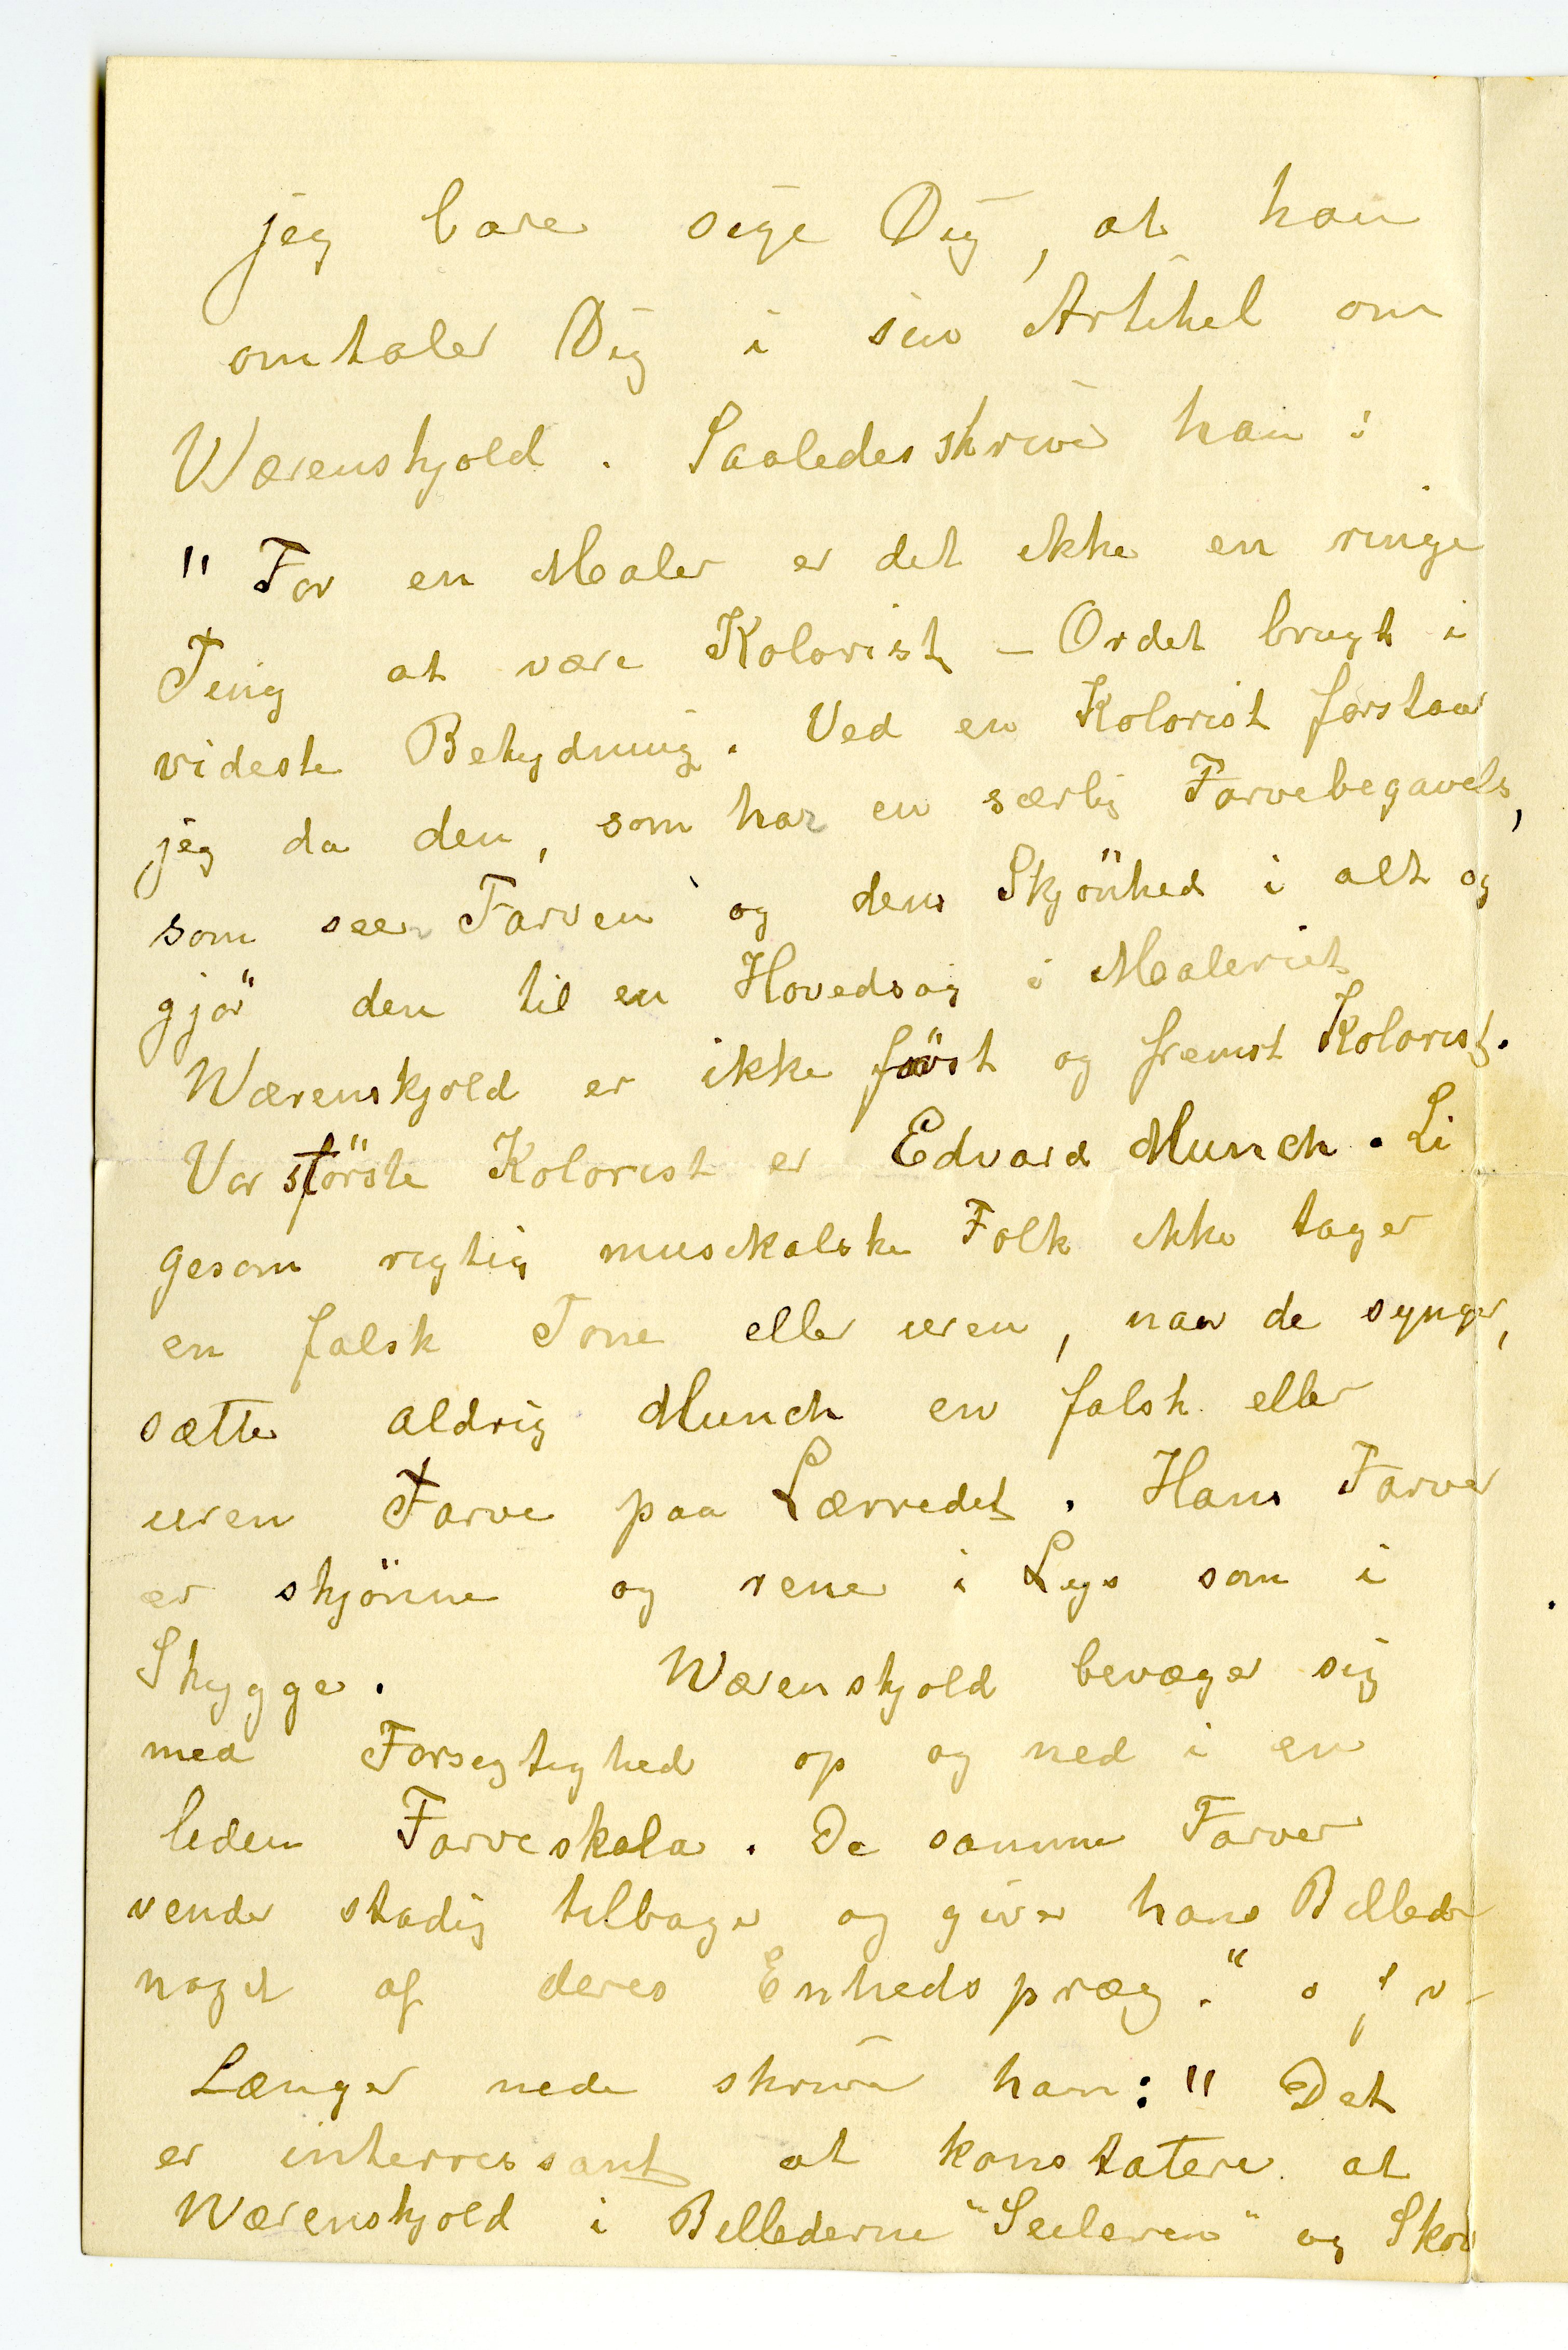 jeg bare sige Dig, at han
omtaler Dig i sin Artikel om
Wærenskjold. Saaledes skriver han:
"For en Maler er det ikke en ringe
Ting at være Kolorist – Ordet brugt i
videste Betydning. Ved en Kolorist forstaar
jeg da den, som har en særlig Farvebegavels,
som seer Farven og dens Skjönhed i alt og
gjör den til en Hovedsag i Maleriet
Wærenskjold er ikke först og fremst Kolorist.
Vor störste Kolorist er Edvard Munch. Li
gesom rigtig musikalske Folk ikke tager
en falsk Tone eller uren, naar de synger,
sætter aldrig Munch en falsk eller
uren Farve paa Lærredet. Hans Farver
er skjönne og rene i Lys som i
Skygge. Wærenskjold bevæger sig
med Forsigtighed op og ned i en
liden Farveskala. De samme Farver
vender stadig tilbage og giver hans Billeder
noget af deres Enhedspræg." o s v
Længer nede skriver han: "Det
er interressant at konstatere at
Wærenskjold i Billederne "Seileren" og Skov